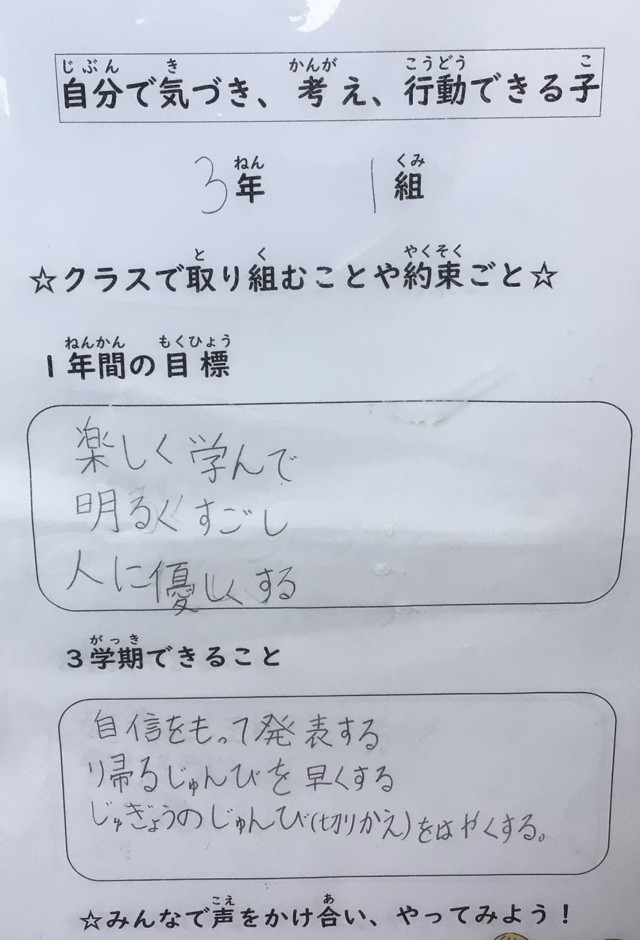 じぶん き かんが こうどう こ
自分で気づき、考え、行動できる子
ねん くみ
3年 1組
と く やくそく
☆クラスで取り組むことや約束ごと☆
ねんかん もくひょう
1年間の目標
楽しく学んで
明るくすごし
人に優しくする
がっき
3学期できること
自信をもって発表する
り帰るじゅんびを早くする
じゅぎょうのじゅんび(切りかえ)をはやくする。
こえ あ
☆みんなで声をかけ合い、やってみよう!